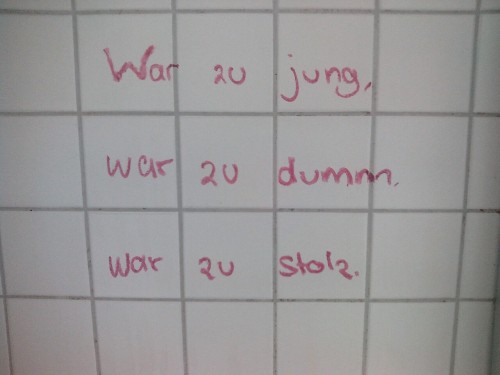 War zu jung,
war zu dumm.
war zu stolz.